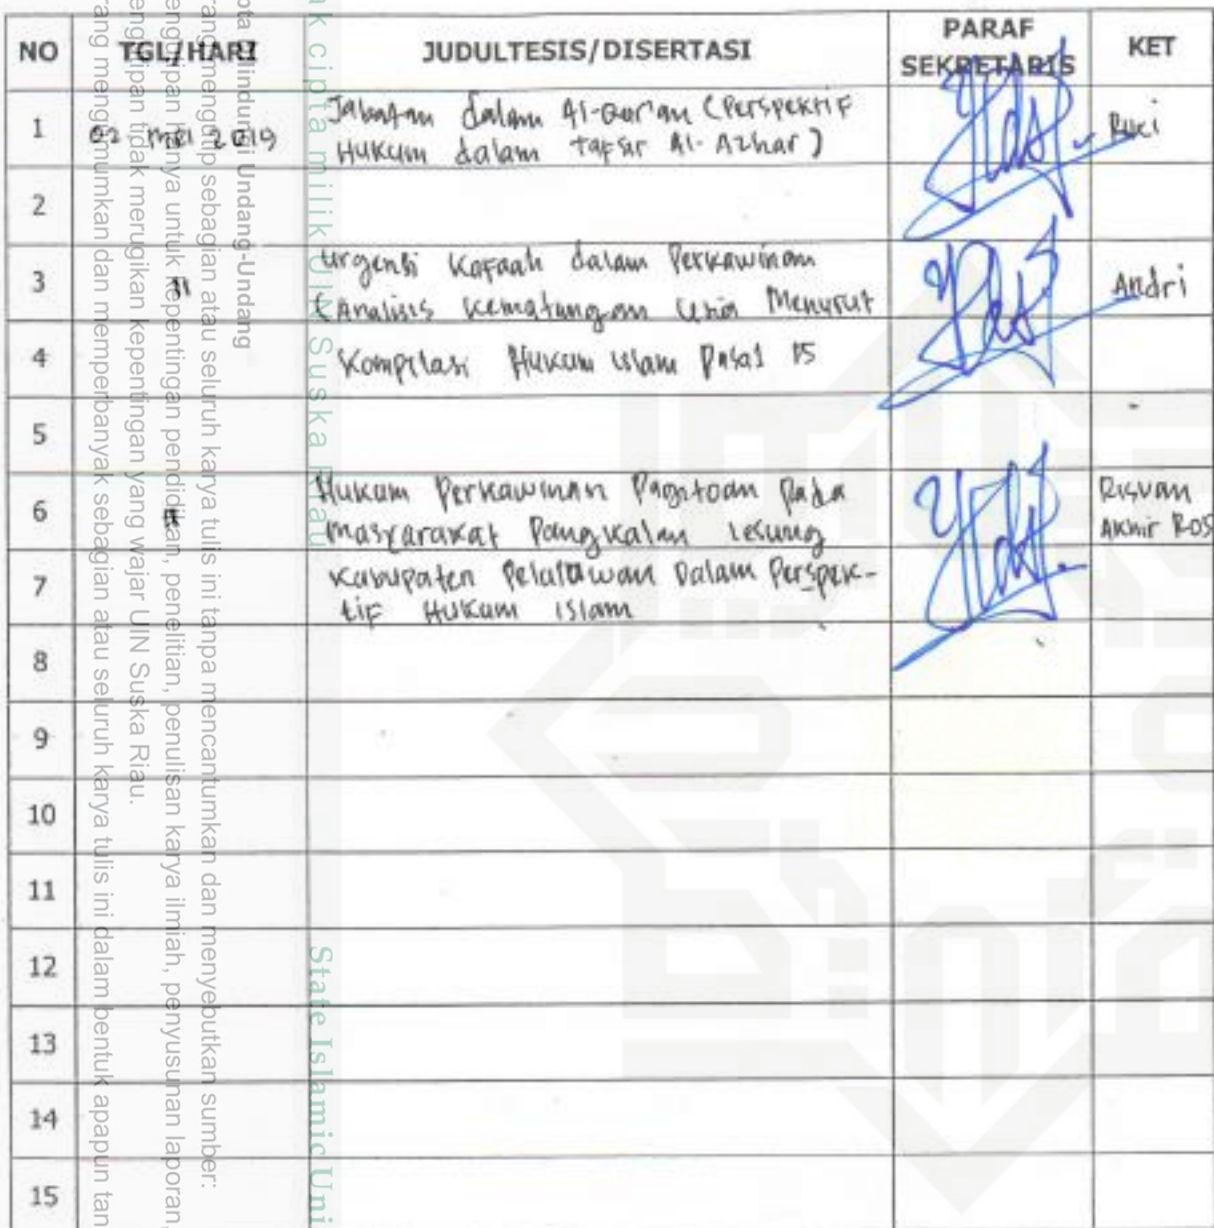 NO TGL/HARI JUDULTESIS/DISERTASI PARAF SEKRETARIS KET
1 02 Mei 2019 Jabatan dalam Al-Qur'an (Perspektif
Hukum dalam tafsir Al-Azhar)
Ruci
2
3 " Urgensi Kafaah dalam Perkawinan
(Analisis Kematangan Usia Menurut
Andri
4 Kompilasi Hukum islam Pasal 15
5
6 " Hukum Perkawinan Pagitoan Pada
masyarakat Pangkalan Lesung
Risvan
Akhir Ros
7 Kabupaten Pelalawan Dalam Perspek-
tif Hukum islam
8
9
10
11
12
13
14
15
ak cipta milik UIN Suska Riau
State Islamic Uni
pta Dilindungi Undang-Undang
rang mengutip sebagian atau seluruh karya tulis ini tanpa mencantumkan dan menyebutkan sumber:
engutipan hanya untuk kepentingan pendidikan, penelitian, penulisan karya ilmiah, penyusunan laporan,
engutipan tidak merugikan kepentingan yang wajar UIN Suska Riau.
rang mengumumkan dan memperbanyak sebagian atau seluruh karya tulis ini dalam bentuk apapun tan